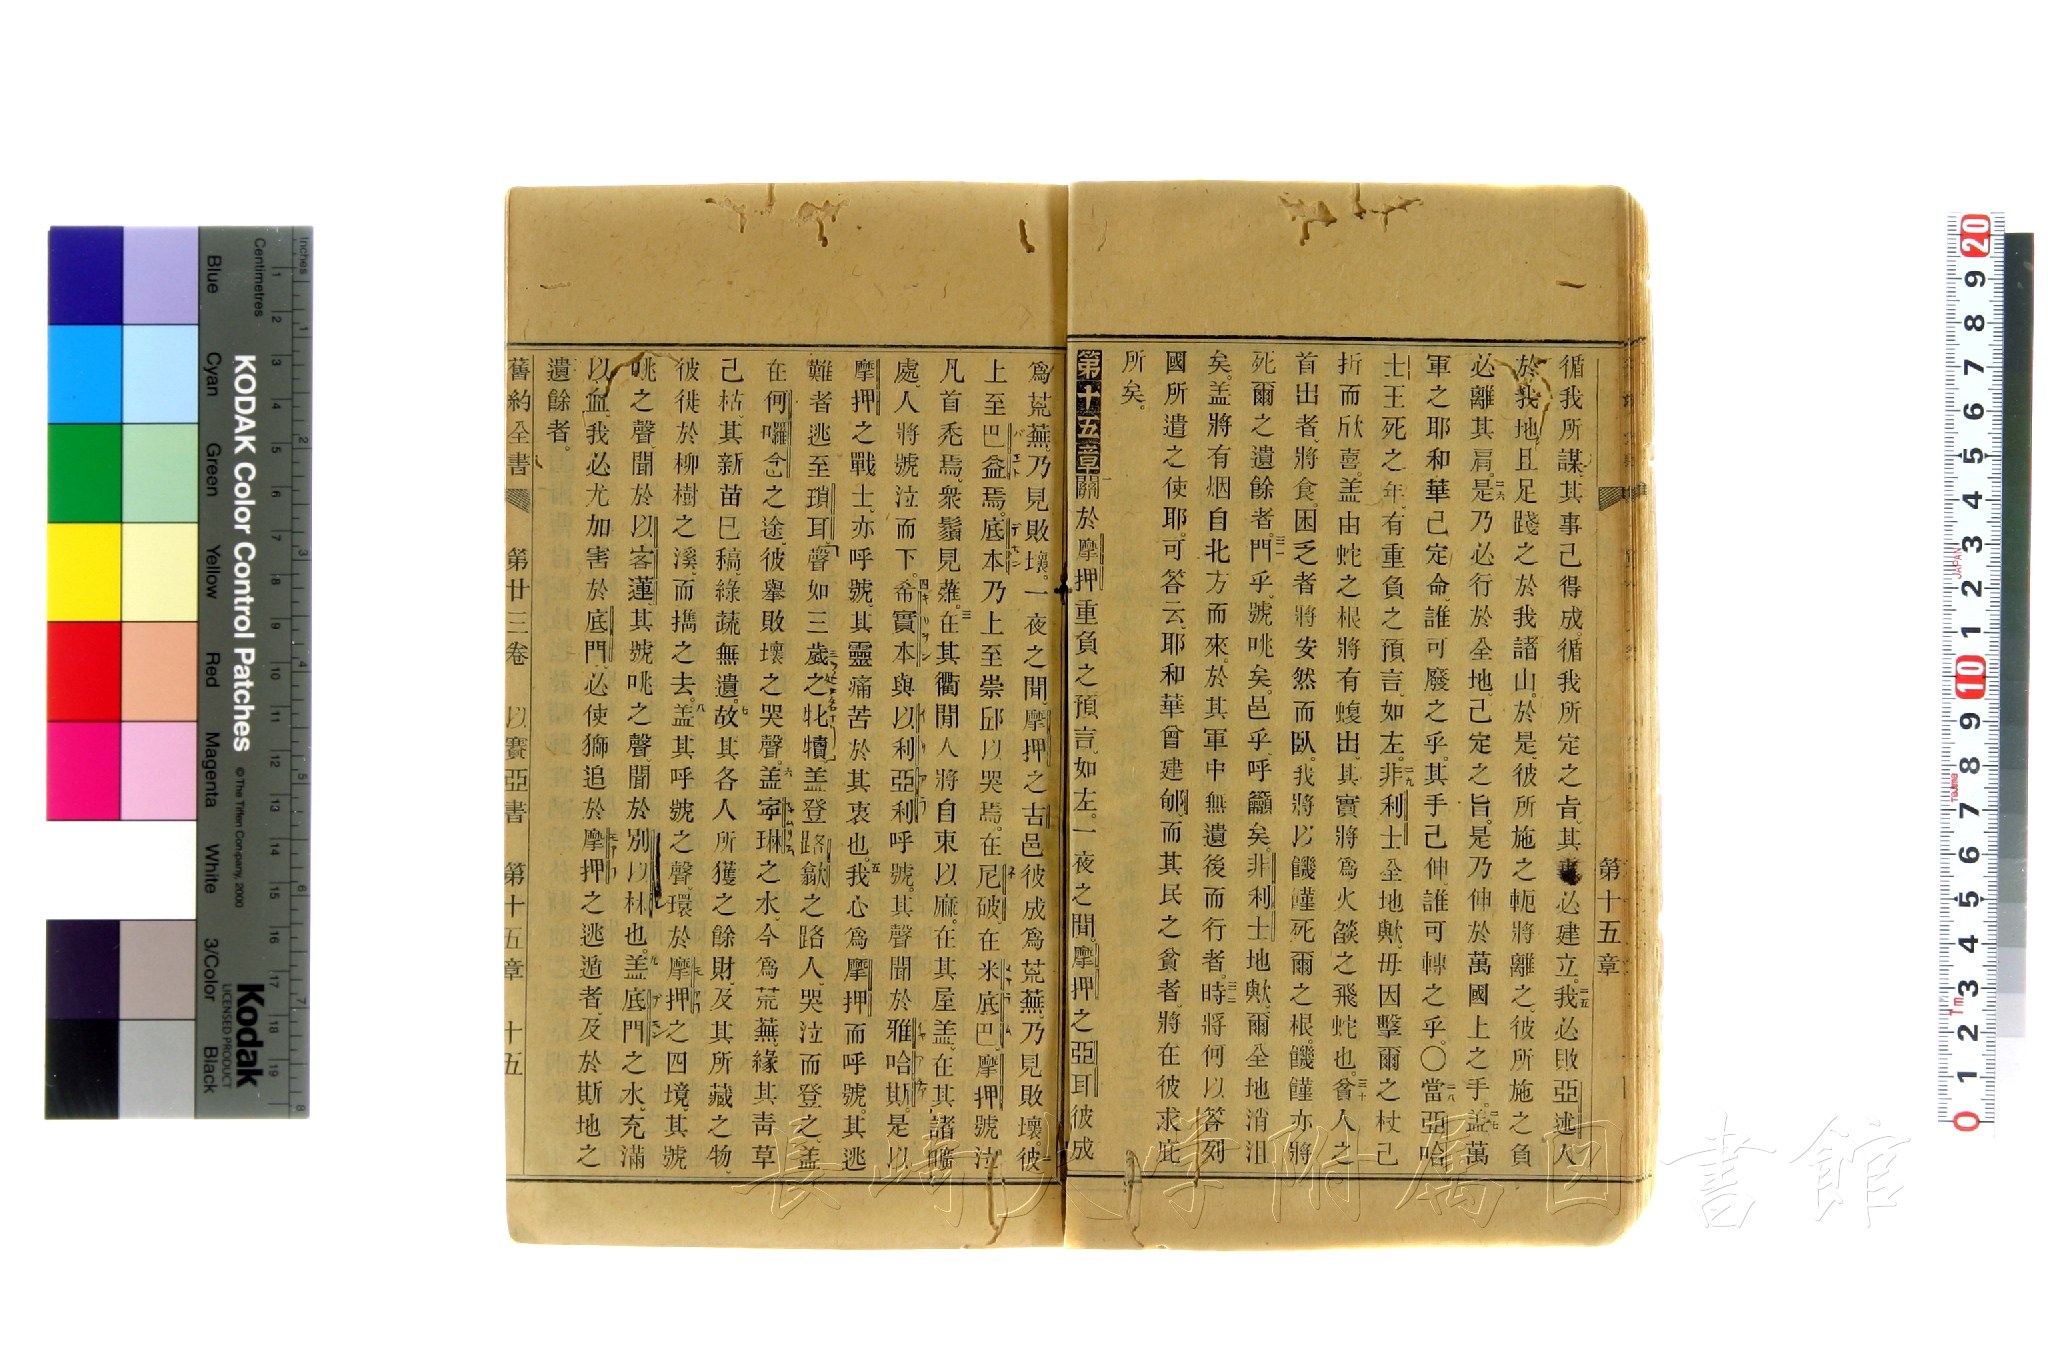 第十五章
循我所謀其事己得成循我所定之旨其必建立我必敗亞述人
於我地且足踐之於我諸山於是彼所施之軛將離之彼所施之負
必離其肩是乃必行於全地己定之旨是乃伸於萬國上之手盖萬
軍之耶和華己定命誰可廢之乎其手己伸誰可轉之乎○當亞哈
士王死之年有重負之預言如左非利士全地歟毋因擊爾之杖己
折而欣喜盖由蛇之根將有蝮出其實將爲火燄之飛蛇也貧人之
首出者將食困乏者將安然而臥我將以饑饉死爾之根饑饉亦將
死爾之遺餘者門乎號咷矣邑乎呼籲矣非利士地歟爾全地消沮
矣盖將有烟自北方而來於其軍中無遺後而行者時將何以答列
國所遣之使耶可答云耶和華曾建郇而其民之貧者將在彼求庇
所矣
第十五章關於摩押重負之預言如左一夜之間摩押之亞耳彼成
爲荒蕪乃見敗壞一夜之間摩押之古邑彼成爲荒蕪乃見敗壞彼
上至巴益焉底本乃上至崇邱以哭焉在尼破在米底巴摩押號泣
凡首禿焉衆鬚見薙在其衢間人將自束以麻在其屋盖在其諸曠
處人將號泣而下希實本與以利亞利呼號其聲聞於雅哈斯是以
摩押之戰士亦呼號其靈痛苦於其衷也我心爲摩押而呼號其逃
難者逃至瑣耳聲如三歲之牝犢盖登路歙之路人哭泣而登之盖
在何囉念之途彼舉敗壞之哭聲盖寧琳之水今爲荒蕪緣其靑草
己枯其新苗已稿綠蔬無遺故其各人所獲之餘財及其所藏之物
彼徙於柳樹之溪而擕之去盖其呼號之聲環於摩押之四境其號
咷之聲聞於以客蓮其號咷之聲聞於別以林也盖底門之水充滿
以血我必尤加害於底門必使獅追於摩押之逃遁者及於斯地之
遺餘者
舊約全書 第廿三卷 以賽亞書 第十五章 十五
KODAK Color Control Patches
©The Tiffen Company, 2000
Kodak
LICENSED PRODUCT
Inches
Centimetres
Blue
Cyan
Green
Yellow
Red
Magenta
White
3/Color
Black
JAPAN
長崎大学附属図書館